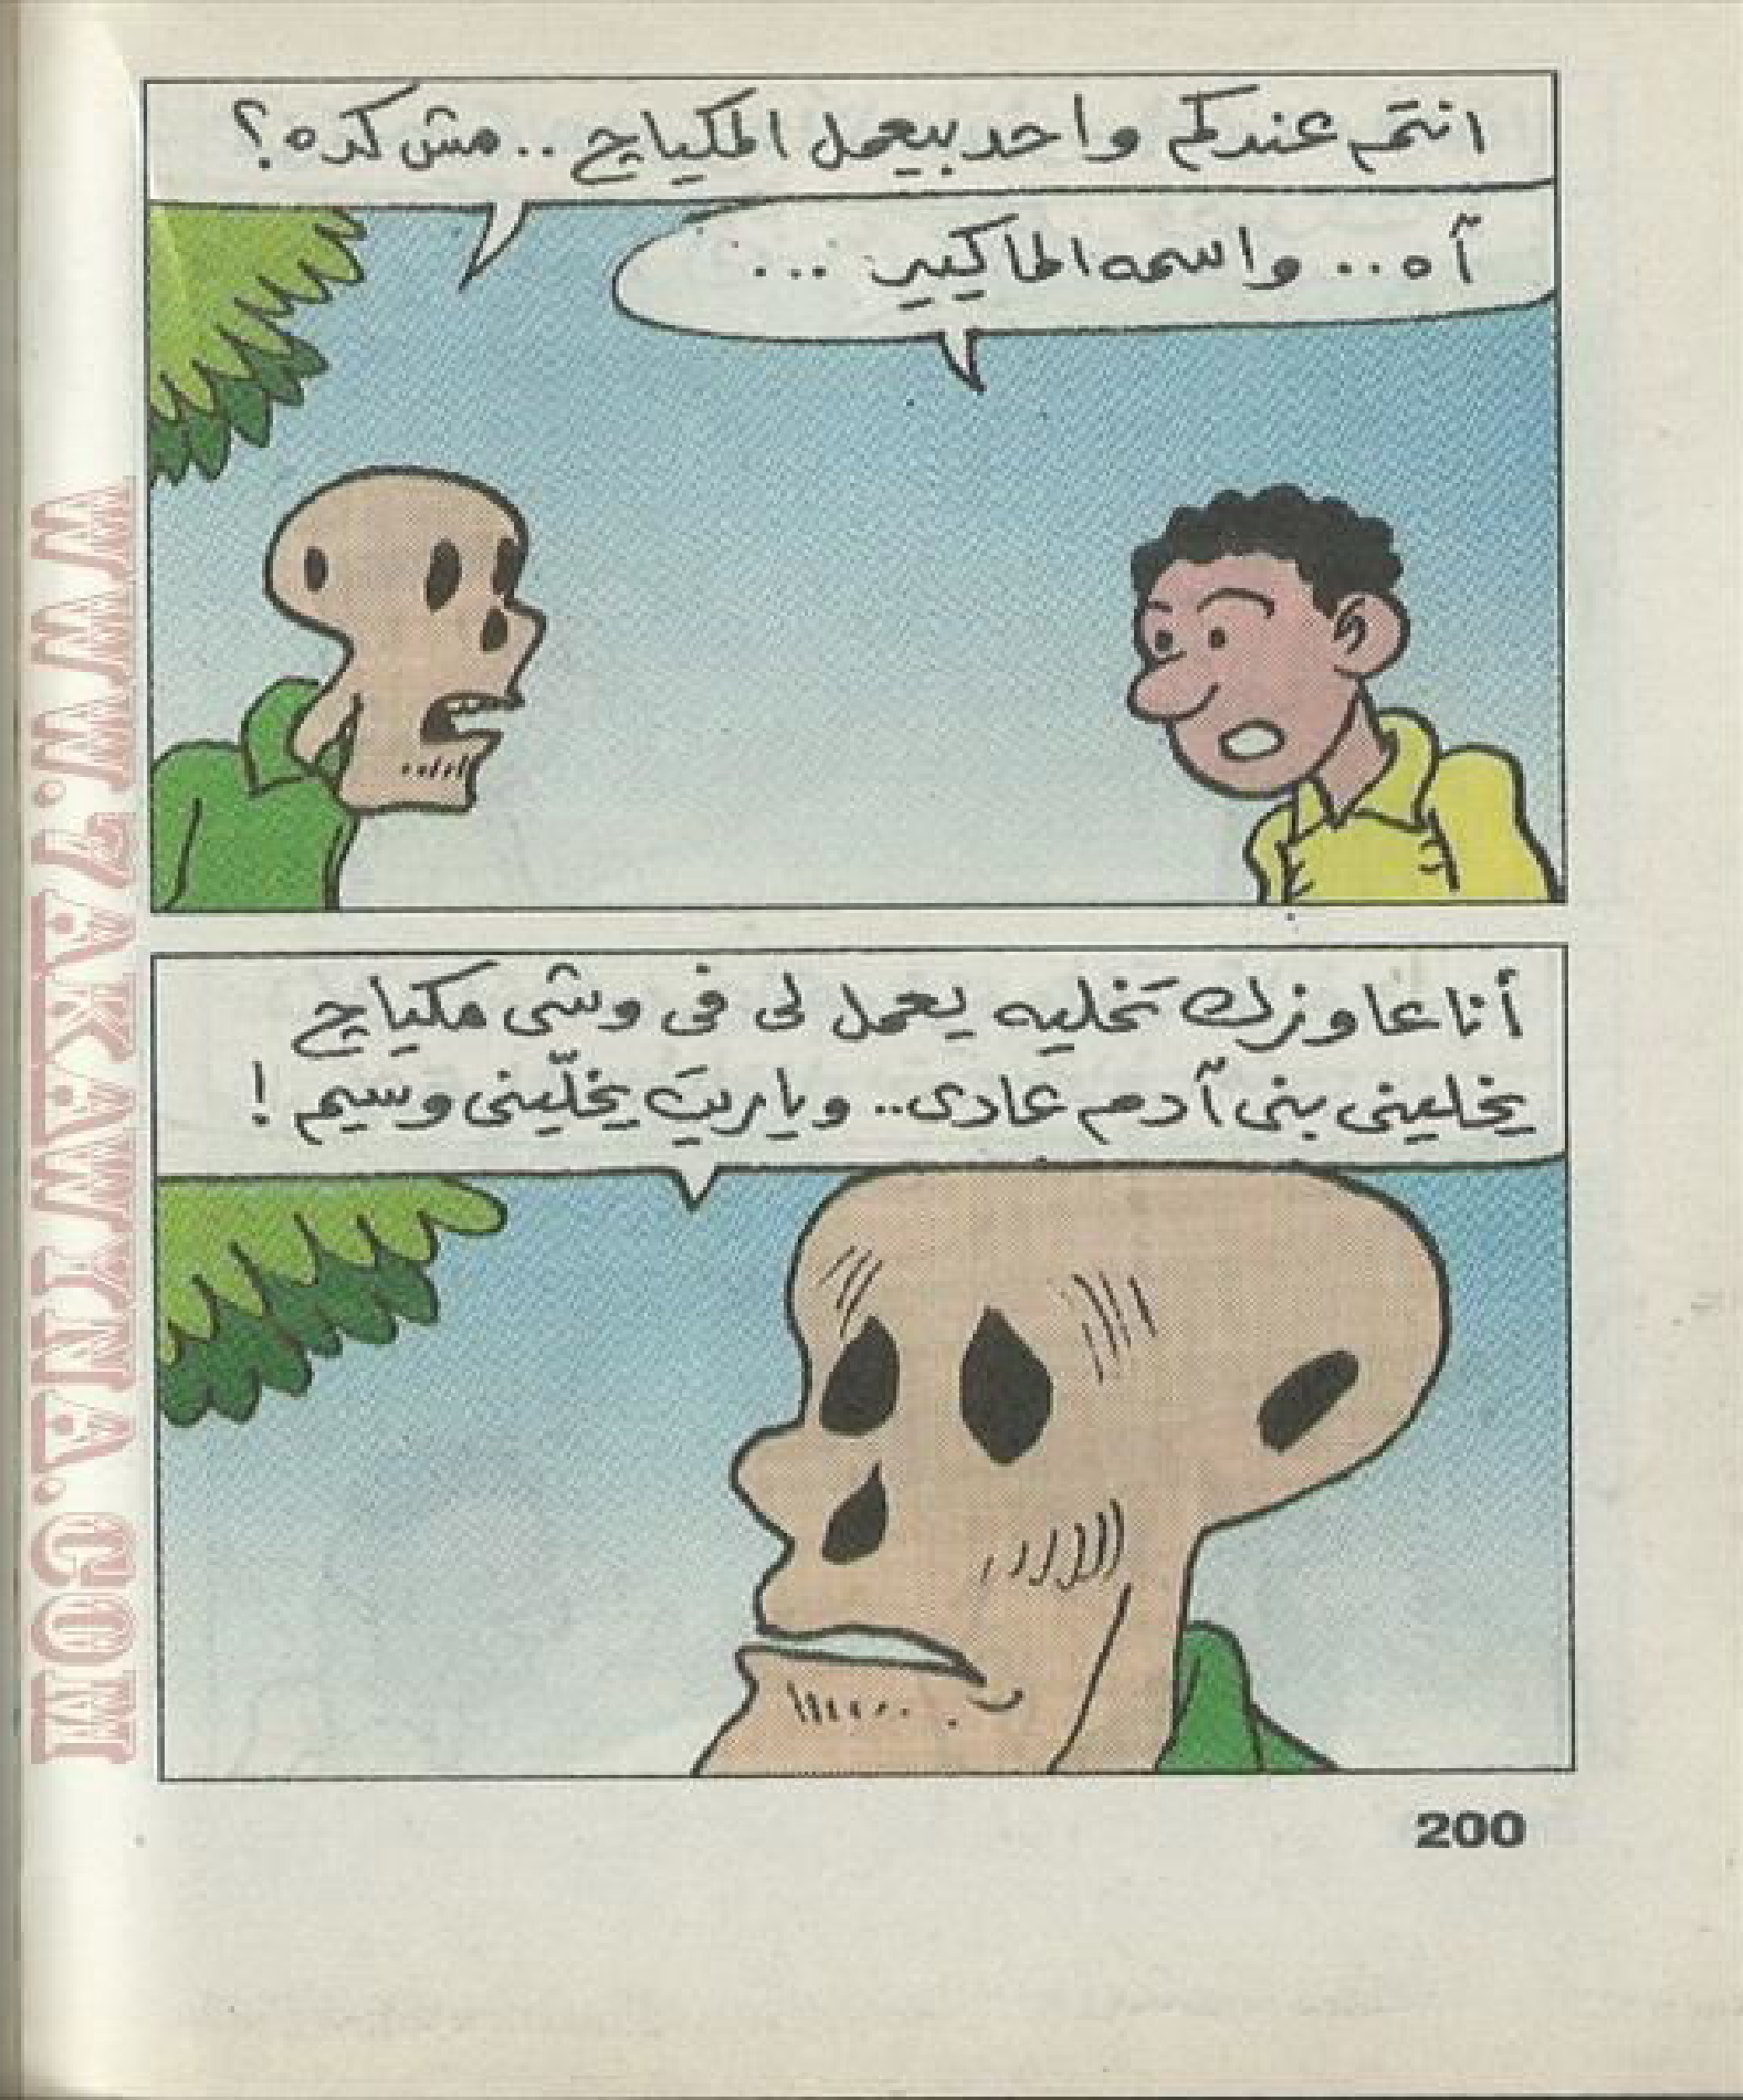 انتم عندكم واحد بيعمل المكياج .. مش كده ؟
آه .. واسمه الماكيير ...
أنا عاوزك تخليه يعمل لى فى وشى مكياج
يخلينى بنى آدم عادى .. وياريتَ يخلّينى وسيم !
200
WWW.7AKAWITNA.COM